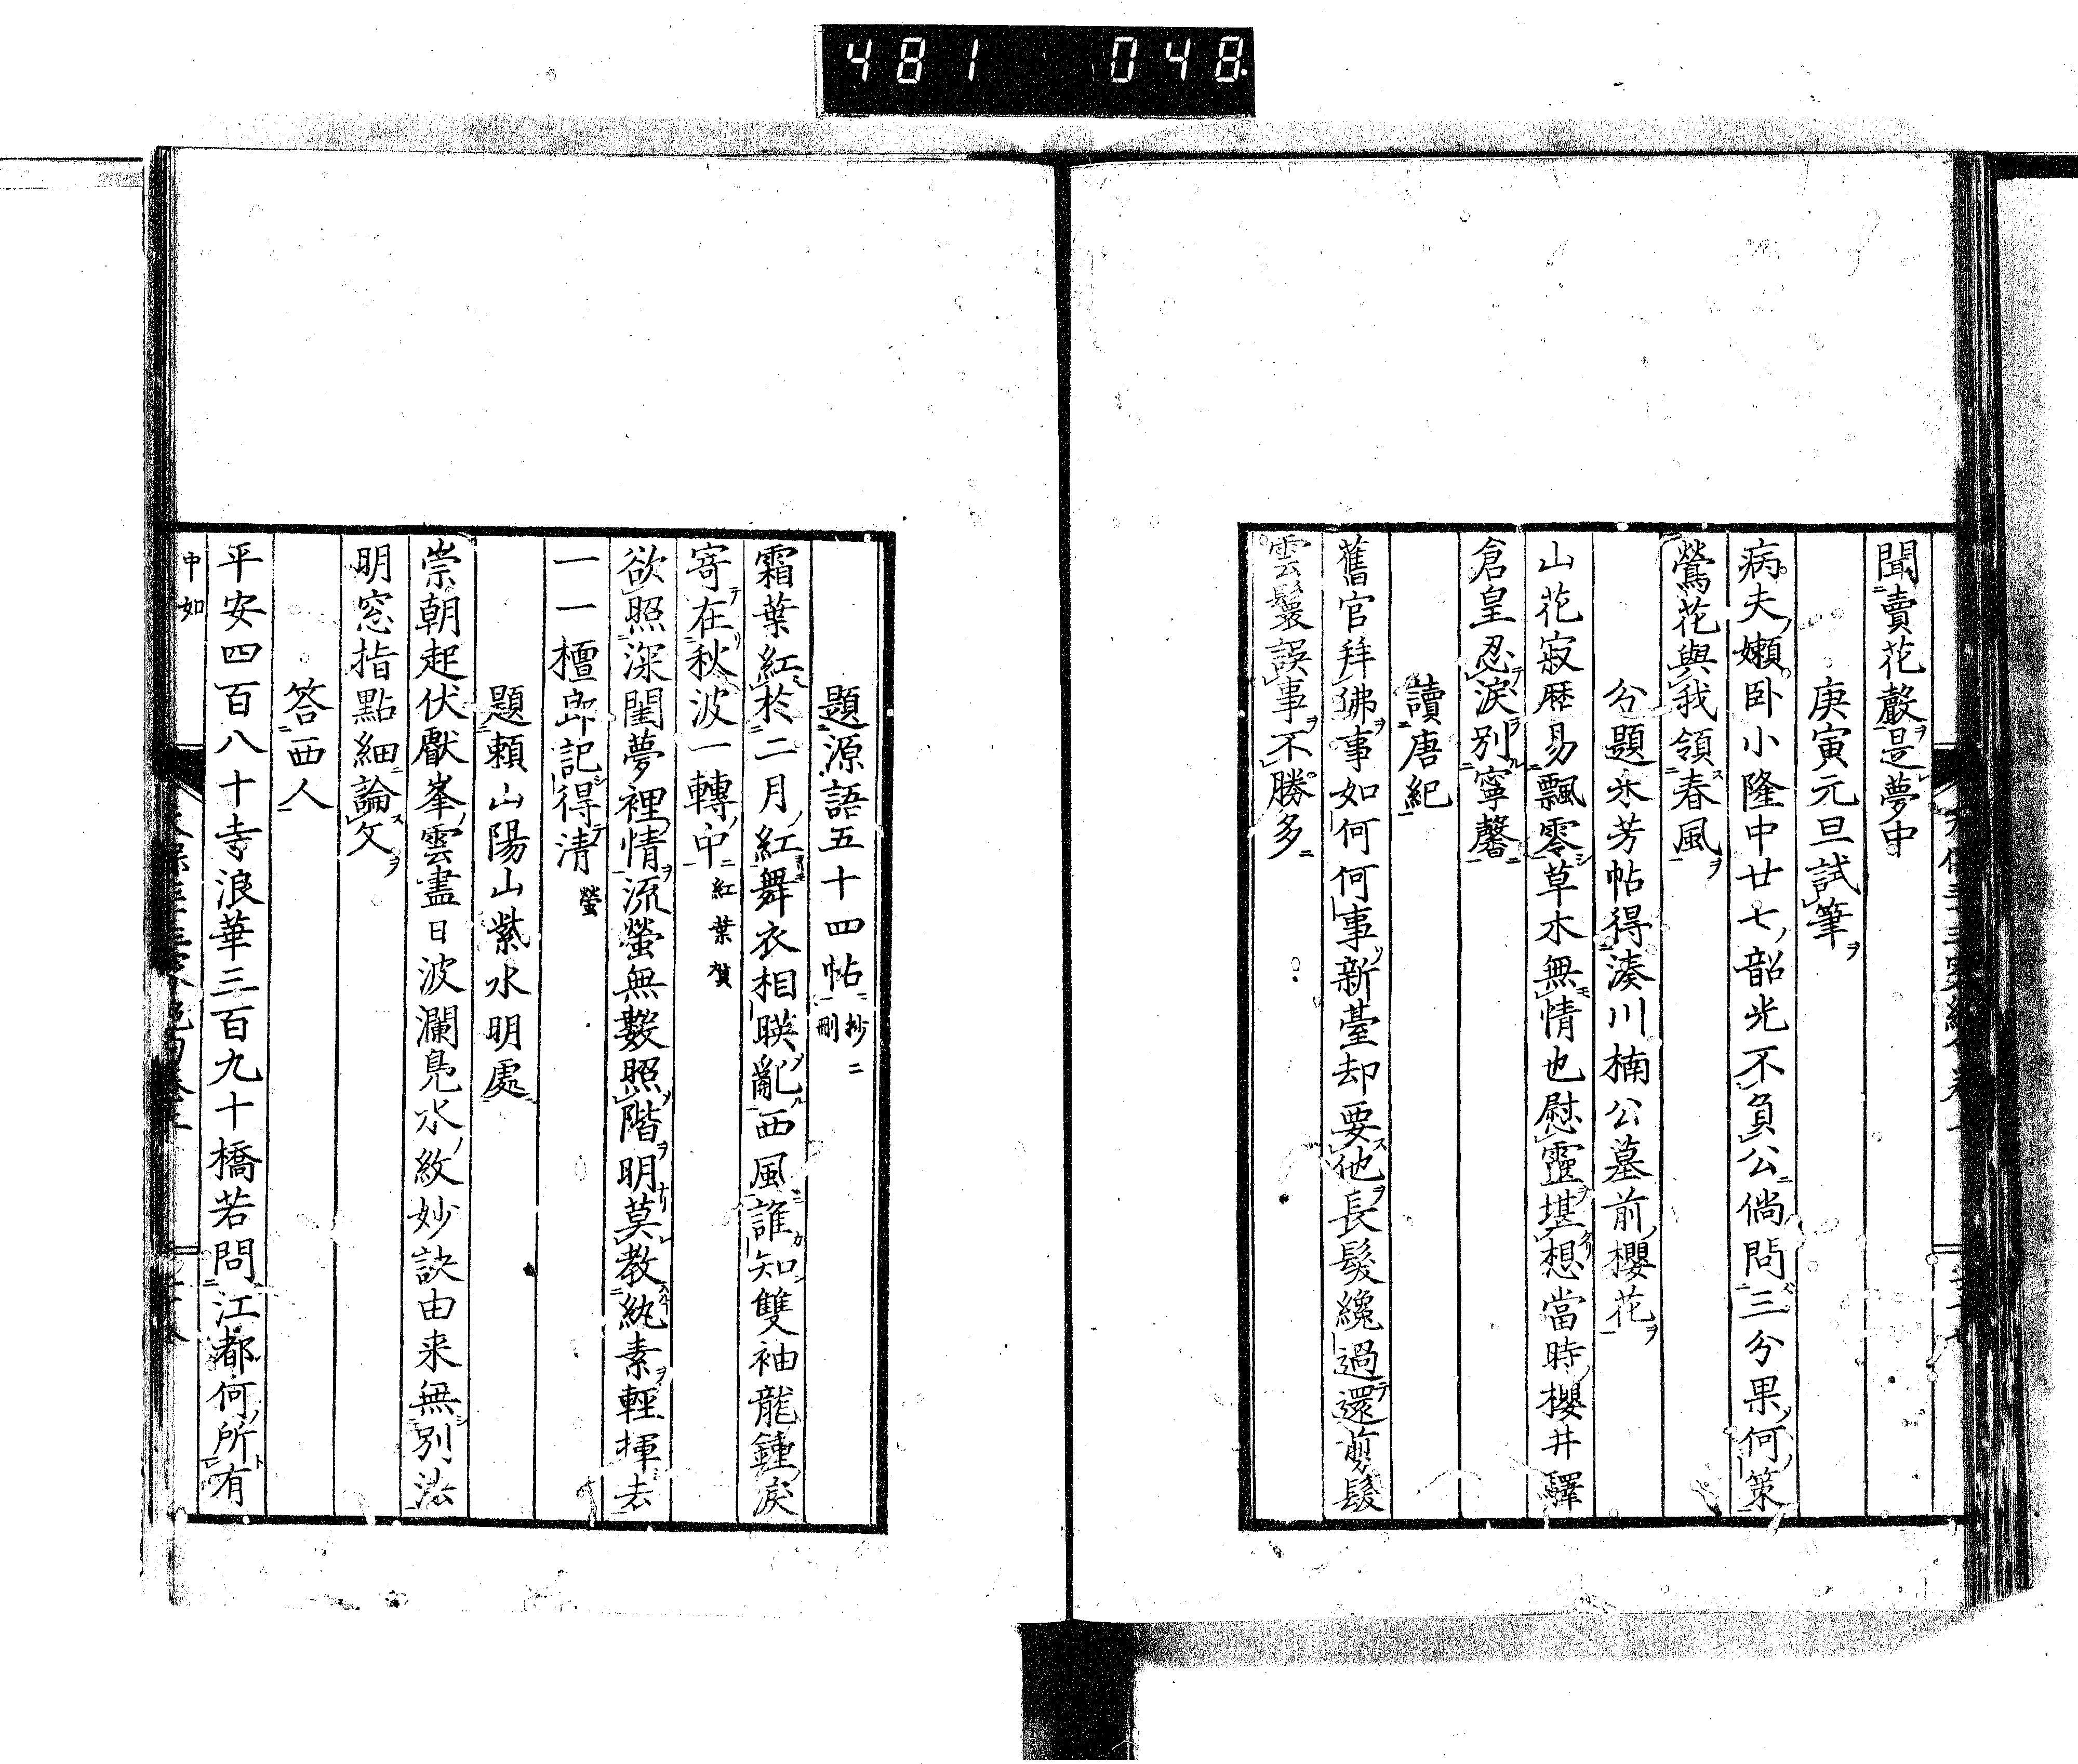 481 048
聞賣花聲是夢中
庚寅元旦試筆
病夫嬾卧小隆中廿七韶光不負公倘問三分果何策
鶯花與我領春風
分題氷芳帖得湊川楠公墓前櫻花
山花寂歴易飄零草木無情也慰靈堪想當時櫻井驛
倉皇忍淚別寧馨
讀唐紀
舊官拜佛事如何何事新臺却要他長髮纔過還剪髮
雲鬟誤事不勝多
題源語五十四帖抄二刪
霜葉紅於二月紅舞衣相映亂西風誰知雙袖龍鍾淚
寄在秋波一轉中紅葉賀
欲照深閨夢裡情流螢無數照階明莫教紈素輕揮去
一一檀郎記得清螢
題頼山陽山紫水明處
崇朝起伏獻峯雲盡日波瀾鳧水紋妙訣由来無別法
明窓指點細論文
答西人
平安四百八十寺浪華三百九十橋若問江都何所有
中如